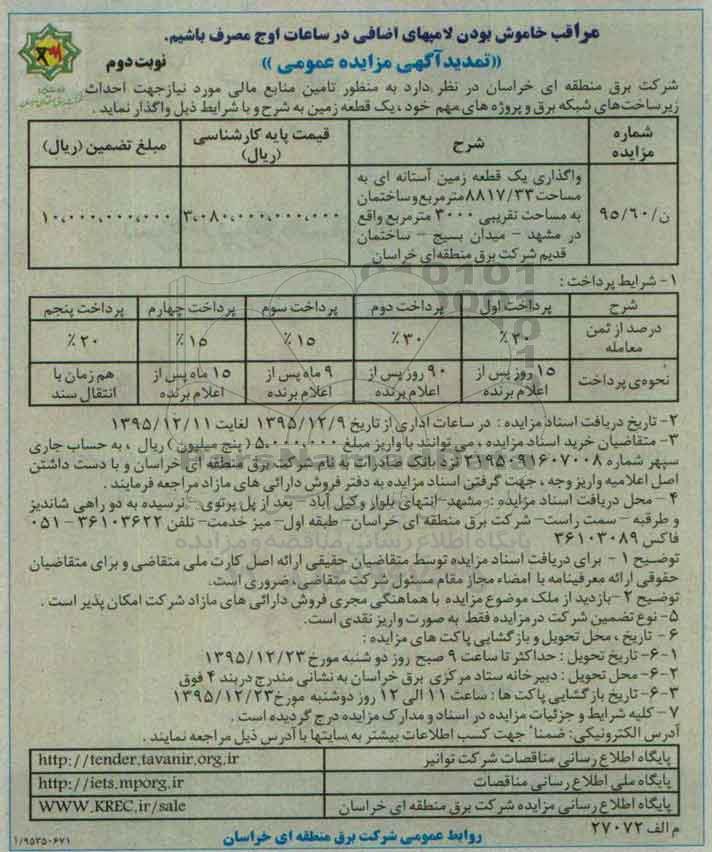 مراقب خاموش بودن لامپهای اضافی در ساعات اوج مصرف باشیم.
«تمدیدآگهی مزایده عمومی» نوبت دوم
شرکت برق منطقه ای خراسان در نظر دارد به منظور تامین منابع مالی مورد نیازجهت احداث
زیرساخت‌های شبکه برق و پروژه های مهم خود ، یک قطعه زمین به شرح و با شرایط ذیل واگذار نماید .
شماره مزایده | شرح | قیمت پایه کارشناسی (ریال) | مبلغ تضمین (ریال)
ن/۹۵/۶۰ | واگذاری یک قطعه زمین آستانه ای به | ۳،۰۸۰،۰۰۰،۰۰۰،۰۰۰ | ۱۰،۰۰۰،۰۰۰،۰۰۰
مساحت ۸۸۱۷/۳۳مترمربع‌وساختمان
به مساحت تقریبی ۳۰۰۰ مترمربع واقع
در مشهد – میدان بسیج – ساختمان
قدیم شرکت برق منطقه‌ای خراسان
۱- شرایط پرداخت :
شرح | پرداخت اول | پرداخت دوم | پرداخت سوم | پرداخت چهارم | پرداخت پنجم
درصد از ثمن معامله | ۲۰٪ | ۳۰٪ | ۱۵٪ | ۱۵٪ | ۲۰٪
نحوه‌ی پرداخت | ۱۵ روز پس از اعلام برنده | ۹۰ روز پس از اعلام برنده | ۹ ماه پس از اعلام برنده | ۱۵ ماه پس از اعلام برنده | هم زمان با انتقال سند
۲- تاریخ دریافت اسناد مزایده : در ساعات اداری از تاریخ ۱۳۹۵/۱۲/۹ لغایت ۱۳۹۵/۱۲/۱۱
۳- متقاضیان خرید اسناد مزایده ، می توانند با واریز مبلغ ۵،۰۰۰،۰۰۰ ( پنج میلیون ) ریال ، به حساب جاری
سپهر شماره ۲۱۹۵۰۹۱۶۰۷۰۰۸ نزد بانک صادرات به نام شرکت برق منطقه ای خراسان و با دست داشتن
اصل اعلامیه واریز وجه ، جهت گرفتن اسناد مزایده به دفتر فروش دارائی های مازاد مراجعه فرمایند .
۴ – محل دریافت اسناد مزایده : مشهد–انتهای بلوار وکیل آباد – بعد از پل پرتوی – نرسیده به دو راهی شاندیز
و طرقبه – سمت راست– شرکت برق منطقه ای خراسان– طبقه اول– میز خدمت– تلفن ۳۶۱۰۳۶۲۲ – ۰۵۱
فاکس ۳۶۱۰۳۰۸۹
توضیح ۱ – برای دریافت اسناد مزایده توسط متقاضیان حقیقی ارائه اصل کارت ملی متقاضی و برای متقاضیان
حقوقی ارائه معرفینامه با امضاء مجاز مقام مسئول شرکت متقاضی، ضروری است.
توضیح ۲ –بازدید از ملک موضوع مزایده با هماهنگی مجری فروش دارائی های مازاد شرکت امکان پذیر است .
۵- نوع تضمین شرکت درمزایده فقط به صورت واریز نقدی است.
۶ – تاریخ ، محل تحویل و بازگشایی پاکت های مزایده :
۶-۱- تاریخ تحویل : حداکثر تا ساعت ۹ صبح روز دو شنبه مورخ ۱۳۹۵/۱۲/۲۳
۶-۲- محل تحویل : دبیرخانه ستاد مرکزی برق خراسان به نشانی مندرج در بند ۴ فوق
۶-۳- تاریخ بازگشایی پاکت ها : ساعت ۱۱ الی ۱۲ روز دوشنبه مورخ ۱۳۹۵/۱۲/۲۳
۷- کلیه شرایط و جزئیات مزایده در اسناد و مدارک مزایده درج گردیده است .
آدرس الکترونیکی: ضمناً جهت کسب اطلاعات بیشتر به سایتها با آدرس ذیل مراجعه نمایند .
پایگاه اطلاع رسانی مناقصات شرکت توانیر | http://tender.tavanir.org.ir
پایگاه ملی اطلاع رسانی مناقصات | http://iets.mporg.ir
پایگاه اطلاع رسانی مزایده شرکت برق منطقه ای خراسان | WWW.KREC.ir/sale
م الف ۲۷۰۷۲
روابط عمومی شرکت برق منطقه ای خراسان
۱/۹۵۳۵۰۶۷۱